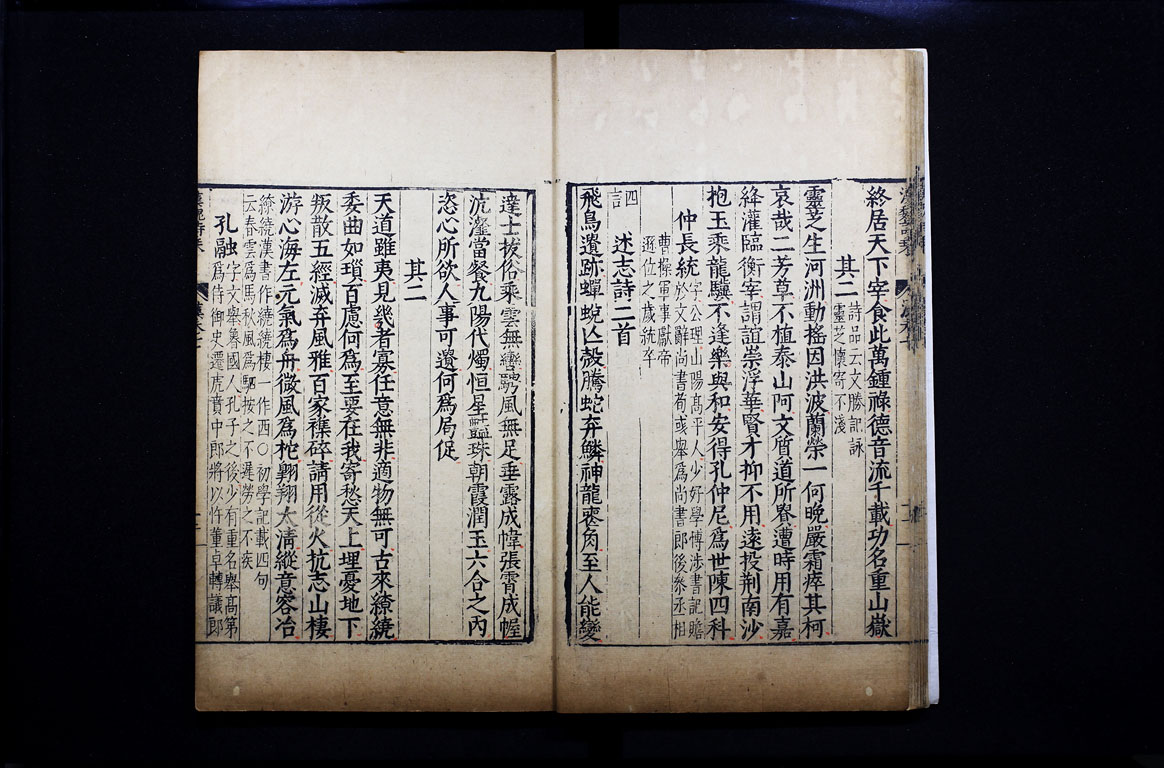 終居天下宰食此萬鍾祿德音流千載功名重山嶽
其二
詩品云文勝託詠
靈芝懷寄不淺
靈芝生河洲動搖因洪波蘭榮一何晚嚴霜瘁其柯
哀哉二芳草不植泰山阿文質道所貴遭時用有嘉
絳灌臨衡宰謂誼崇浮華賢才抑不用遠投荆南沙
抱玉乘龍驥不逢樂與和安得孔仲尼爲世陳四科
仲長統
字公理山陽高平人少好學博涉書記贍
於文辭尚書荀彧舉爲尚書郎後參丞相
曹操軍事獻帝
遜位之歲統卒
述志詩二首
四言
飛鳥遺跡蟬蛻亾殼騰蛇弃鱗神龍䘮角至人能變
達士拔俗乘雲無轡騁風無足垂露成幃張霄成幄
沆瀣當餐九陽代燭恒星豔珠朝霞潤玉六合之内
恣心所欲人事可遺何爲局促
其二
天道雖夷見幾者寡任意無非適物無可古來繚繞
委曲如瑣百慮何爲至要在我寄愁天上埋憂地下
叛散五經滅弃風雅百家襍碎請用從火抗志山棲
游心海左元氣爲舟微風爲柁翺翔太清縱意容冶
繚繞漢書作繞繞棲一作西○初學記載四句
云春雲爲馬秋風爲駟按之不遲勞之不疾
孔融
字文舉魯國人孔子之後少有重名舉高第
爲侍御史遷虎賁中郎將以忤董卓轉議郎